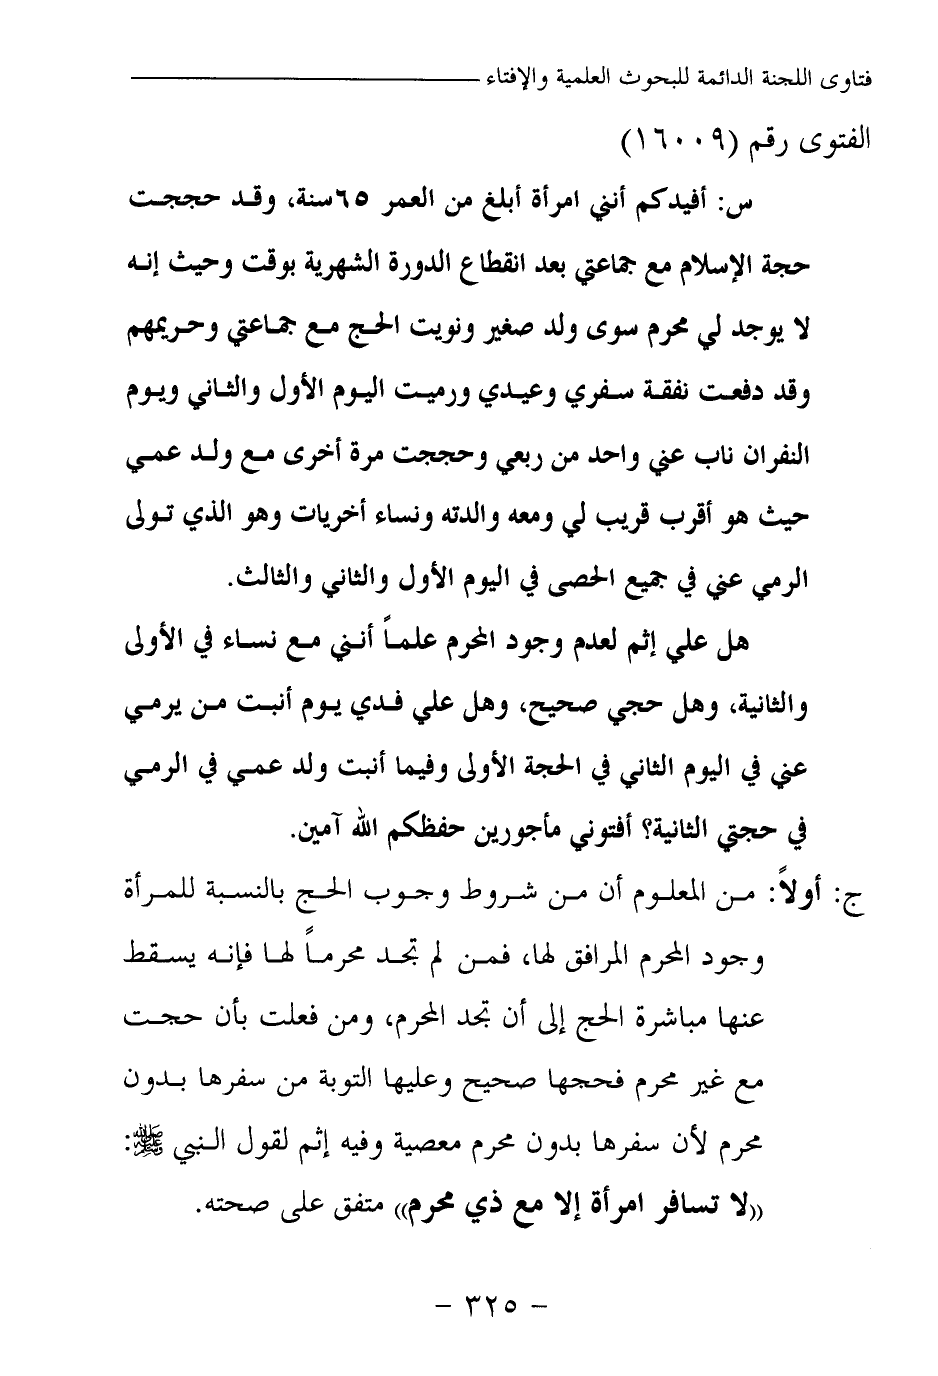 فتاوى اللجنة الدائمة للبحوث العلمية والإفتاء
الفتوى رقم (١٦٠٠٩)
س: أفيدكم أنني امرأة أبلغ من العمر ٦٥سنة، وقد حججت
حجة الإسلام مع جماعتي بعد انقطاع الدورة الشهرية بوقت وحيث إنه
لا يوجد لي محرم سوى ولد صغير ونويت الحج مع جماعتي وحريمهم
وقد دفعت نفقة سفري وعيدي ورميت اليوم الأول والثاني ويوم
النفران ناب عني واحد من ربعي وحججت مرة أخرى مع ولد عمي
حيث هو أقرب قريب لي ومعه والدته ونساء أخريات وهو الذي تولى
الرمي عني في جميع الحصى في اليوم الأول والثاني والثالث.
هل علي إثم لعدم وجود المحرم علماً أنني مع نساء في الأولى
والثانية، وهل حجي صحيح، وهل علي فدي يوم أنبت من يرمي
عني في اليوم الثاني في الحجة الأولى وفيما أنبت ولد عمي في الرمي
في حجتي الثانية؟ أفتوني مأجورين حفظكم الله آمين.
ج: أولاً: من المعلوم أن من شروط وجوب الحج بالنسبة للمرأة
وجود المحرم المرافق لها، فمن لم تجد محرماً لها فإنه يسقط
عنها مباشرة الحج إلى أن تجد المحرم، ومن فعلت بأن حجت
مع غير محرم فحجها صحيح وعليها التوبة من سفرها بدون
محرم لأن سفرها بدون محرم معصية وفيه إثم لقول النبي ﷺ:
((لا تسافر امرأة إلا مع ذي محرم)) متفق على صحته.
- ٣٢٥ -